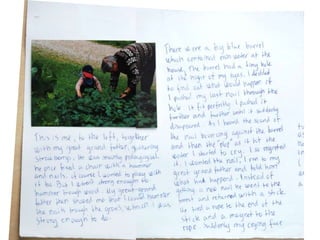 There were a big blue barrel
which contained rain water at the
house. The barrel had a tiny hole
at the hight of my eyes. I decided
to find out what would happen if
I pushed my last nail through the
hole. It fit perfectly. I pushed it
further and further until it suddenly
disappeared. As I heard the sound of
the nail bouncing against the barrel
and then the "plop" as it hit the
water I started to cry. I so regretted
it. I wanted the nail. I ran to my
great grand father and told him
what had happened. Instead of
getting a new nail he went to the
front and returned with a stick.
He tied a rope to the end of the
stick and a magnet to the
rope. Suddenly my crying face
This is me, to the left, together
with my great grand father, growing
strawberrys. He was pedagogical
he once had a chair with a hammer
and nails. Of course I wanted to play with
it too. But I wasn't strong enough to
hammer trough wood. My great grand
father then showed me that I could hammer
the nails trough the grass, which I was
strong enough to do.